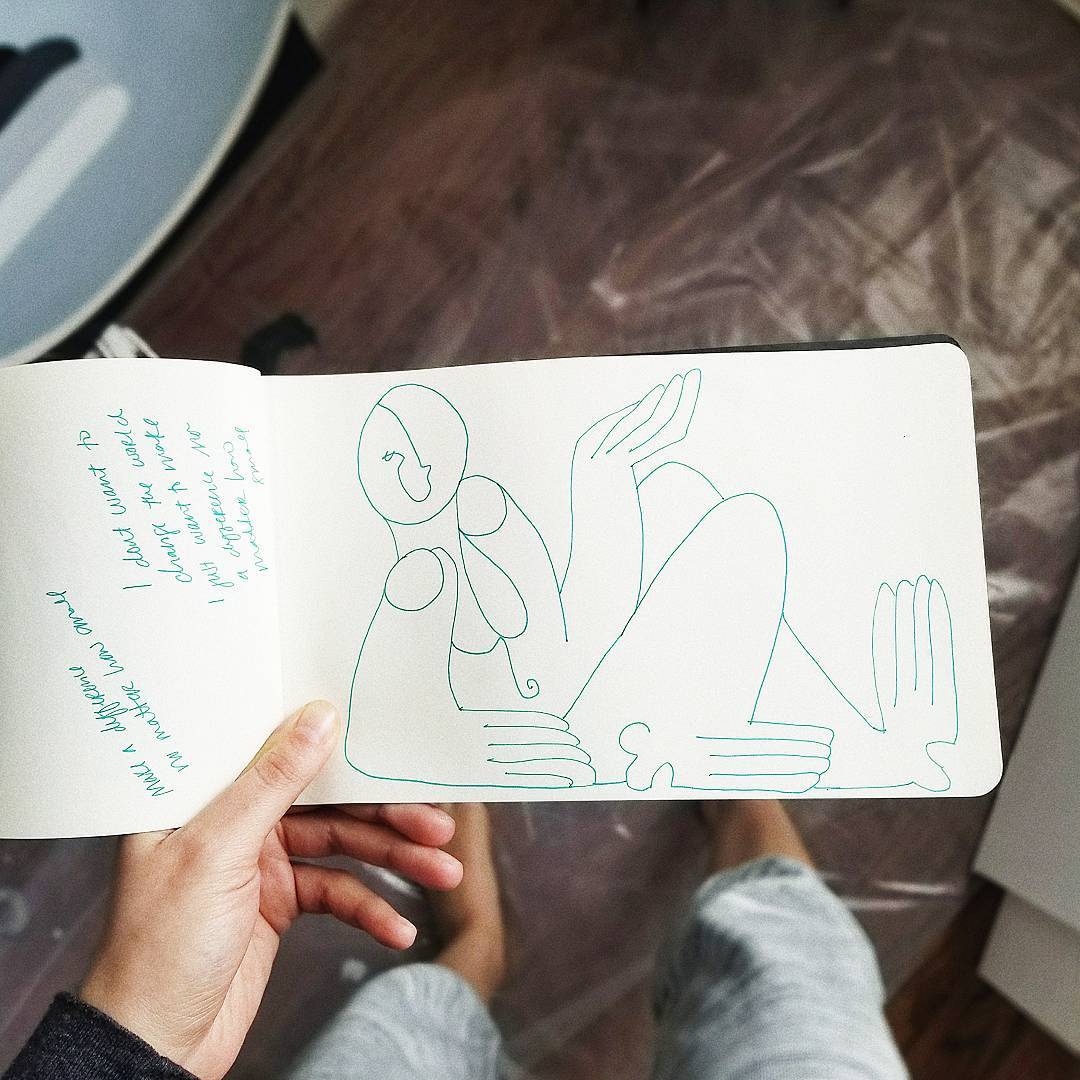 I dont want to
change the world
I just want to make
a difference no
matter how
small
Make a difference
no matter how small